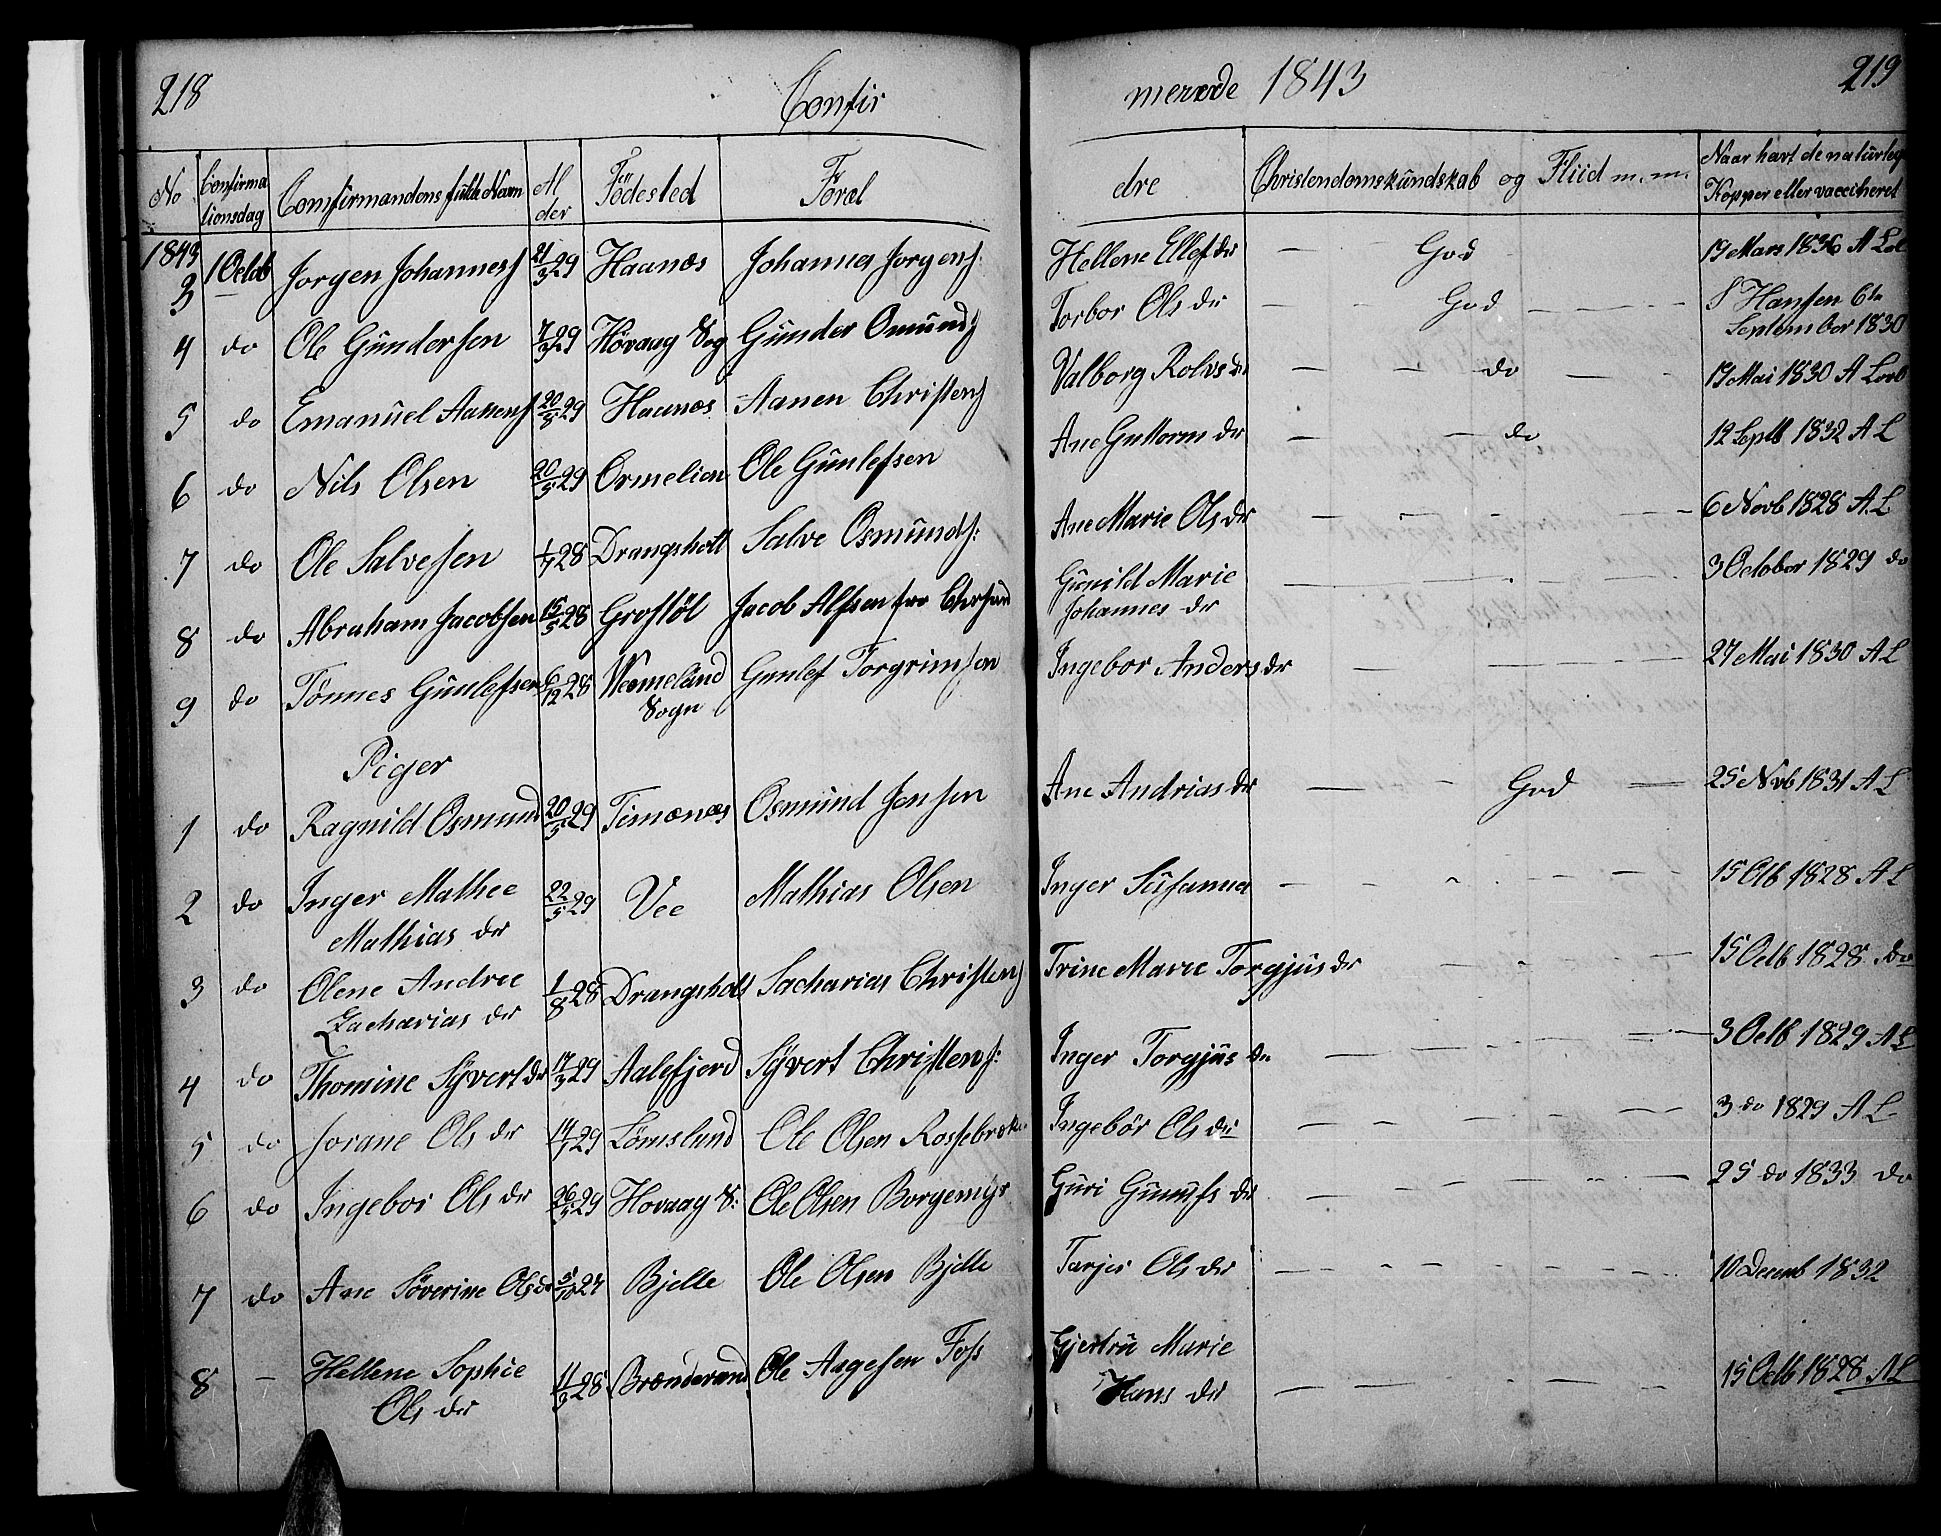 218 Confir merede 1843 219
No Confirma tionsdag Confirmandens fulde Navn Al der Födested Foræl dre Christendomskundskab og Fliid m. m. Naar havt de naturlige Kopper eller vaccineret
1843
3 1 Octob Jorgen Johanness 21/3 29 Haanæs Johannes Jorgens: Hellene Ellefs dr — God 19 Mars 1836 A
4 do Ole Gundersen 7/3 29 Høvaag Sog Gunder Osmunds Torbor Ols dr — — God — — — S Hansen 6te September 1830
5 do Emanuel Aanens 20/5 29 Haanæs Aanen Christens Valborg Rolvs dr — — do — — 19 Mai 1830 A
6 do Nils Olsen 20/5 29 Ormelien Ole Gunlefsen Ane Guttorm dr — — do 12 Septb 1832 A L
7 do Ole Salvesen 1/7 28 Drangsholt Salve Osmunds: Ane Marie Ols dr — — — — 6 Novb 1828 A L
8 do Abraham Jacobsen 15/5 28 Grostøl Jacob Alfsen fra Chrsand Gunild Marie Johannes dr — — — 3 October 1829 do
9 do Tönnes Gunlefsen 6/12 28 Wemeland Sogn Gunlef Torgrimsen Ingebor Anders dr — — — 27 Mai 1830 A L
Piger
1 do Ragnild Osmund 20/5 29 Timenes Osmund Jensen Ane Andrias dr — — God — 25 Novb 1831 A L
2 do Inger Mathee Mathias dr 22/5 29 Vee Mathias Olsen Inger Susanna — — — — 15 Otb 1828 A L
3 do Olene Andree Zacharias dr 1/8 28 Drangsholt Sacharias Christens Trine Marie Torgjus dr — — — 15 Octb 1828 do
4 do Thomine Syvert dr 17/3 29 Aalefjerd Syvert Christens: Inger Torgjus dr — — — — 3 Octb 1829 A L
5 do Jorane Ols dr 14/1 29 Lömslund Ole Olsen Ingebör Ols dr — — — — 3 do 1829 A L
6 do Ingebor Ols dr 26/5 29 Hovaag S: Ole Olsen Borgemyr Guri dr — — — — 25 do 1833 do
7 do Ane Söverine Ols dr 5/10 27 Bjelle Ole Olsen Bjelle Tarjer Ols dr — — — — 10 Decemb 1832
8 — Hellene Sophie Ols dr 11/9 28 Ole Aagesen Foss Gjertru Marie Hans dr — — — — 15 Octb 1828 A L